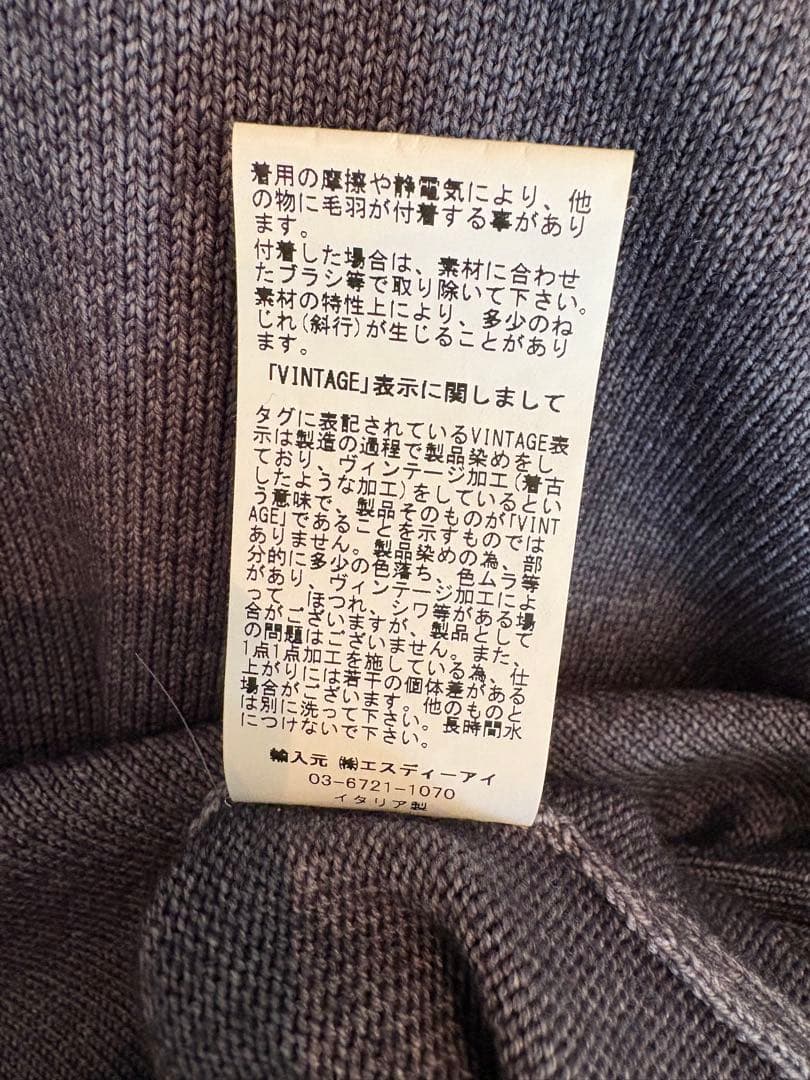 着用の摩擦や静電気により、他
の物に毛羽が付着する事があり
ます。
付着した場合は、素材に合わせ
たブラシ等で取り除いて下さい。
素材の特性上により、多少のね
じれ(斜行)が生じることがあり
ます。
「VINTAGE」表示に関しまして
タグに表記されているVINTAGE表
示は製造の過程で製品染めをし
ており、ヴィンテージ加工(着古
したような加工)をしているとい
う意味で、製品そのものが「VINT
AGE」であることを示すものでは
ありません。製品染めの為、部
分的に多少の色落ち、色ムラ等
があり、ヴィンテージ加工によ
って、ほつれ、シワ等がある場
合がございますが、製品として
の問題はございません。また、
1点1点加工を施している為、仕
上がりには若干の個体差がある
場合がございます。他のものと
は別に洗って下さい。長時間水
につけないで下さい。
輸入元 ㈱エスディーアイ
03-6721-1070
イタリア製